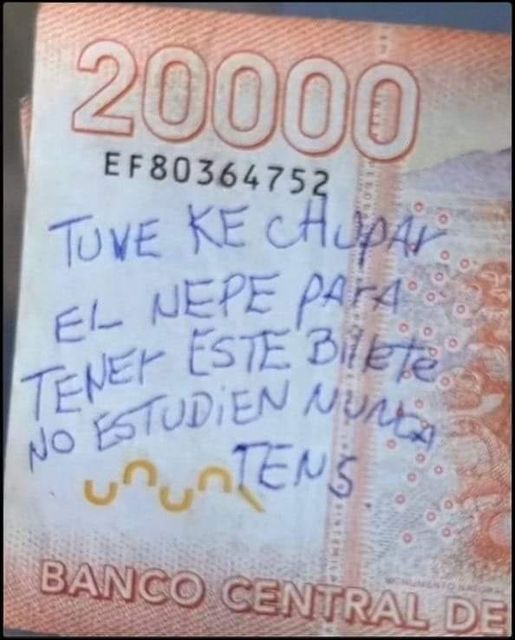 20000
EF80364752
TUVE KE CHUPAr
EL NEPE PArA
TENEr ESTE BilETe
NO ESTUDiEN NUNCA
TENS
BANCO CENTRAL DE
MONUMENTO NATURAL